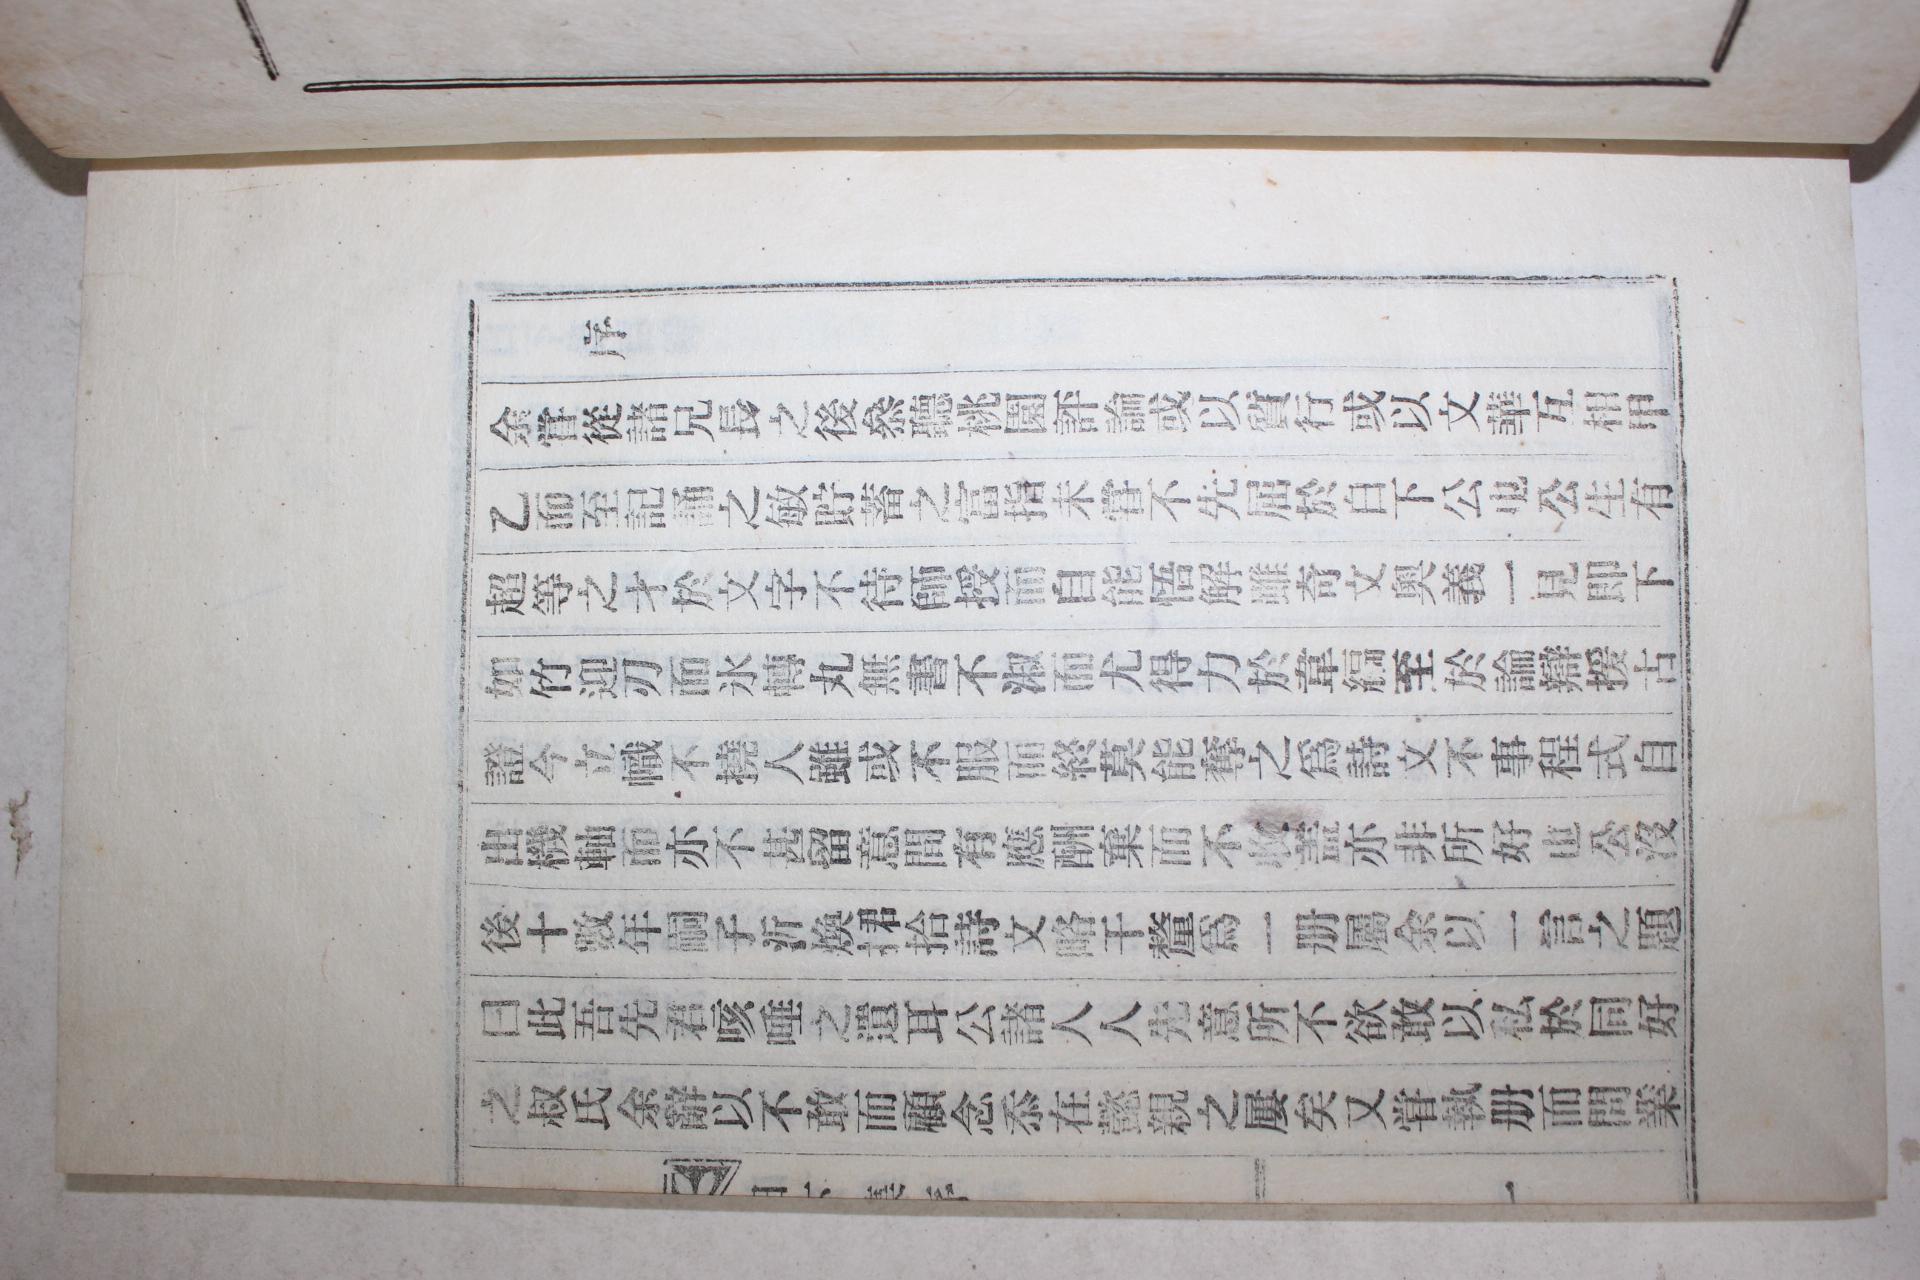 序
余甞從諸兄長之後叅聽桃園評論或以質行或以文華互相甲
乙而至記誦之敏貯蓄之富指未甞不先屈於白下公也公生有
超等之才於文字不待師授而自能悟解雖奇文奧義一見即下
如竹迎刃而氷轉丸無書不淑而尤得力於韋編至於論辯援古
證今立幟不撓人雖或不服而終莫能奪之爲詩文不事程式自
出機軸而亦不甚留意間有應酬棄而不收盖亦非所好也公沒
後十數年嗣子沂煥捃拾詩文略干釐爲一册屬余以一言之題
曰此吾先君咳唾之遺耳公諸人人先意所不欲敢以私於同好
之叔氏余辭以不敢而顧念忝在懿親之屢矣又甞執册而問業
集序 一